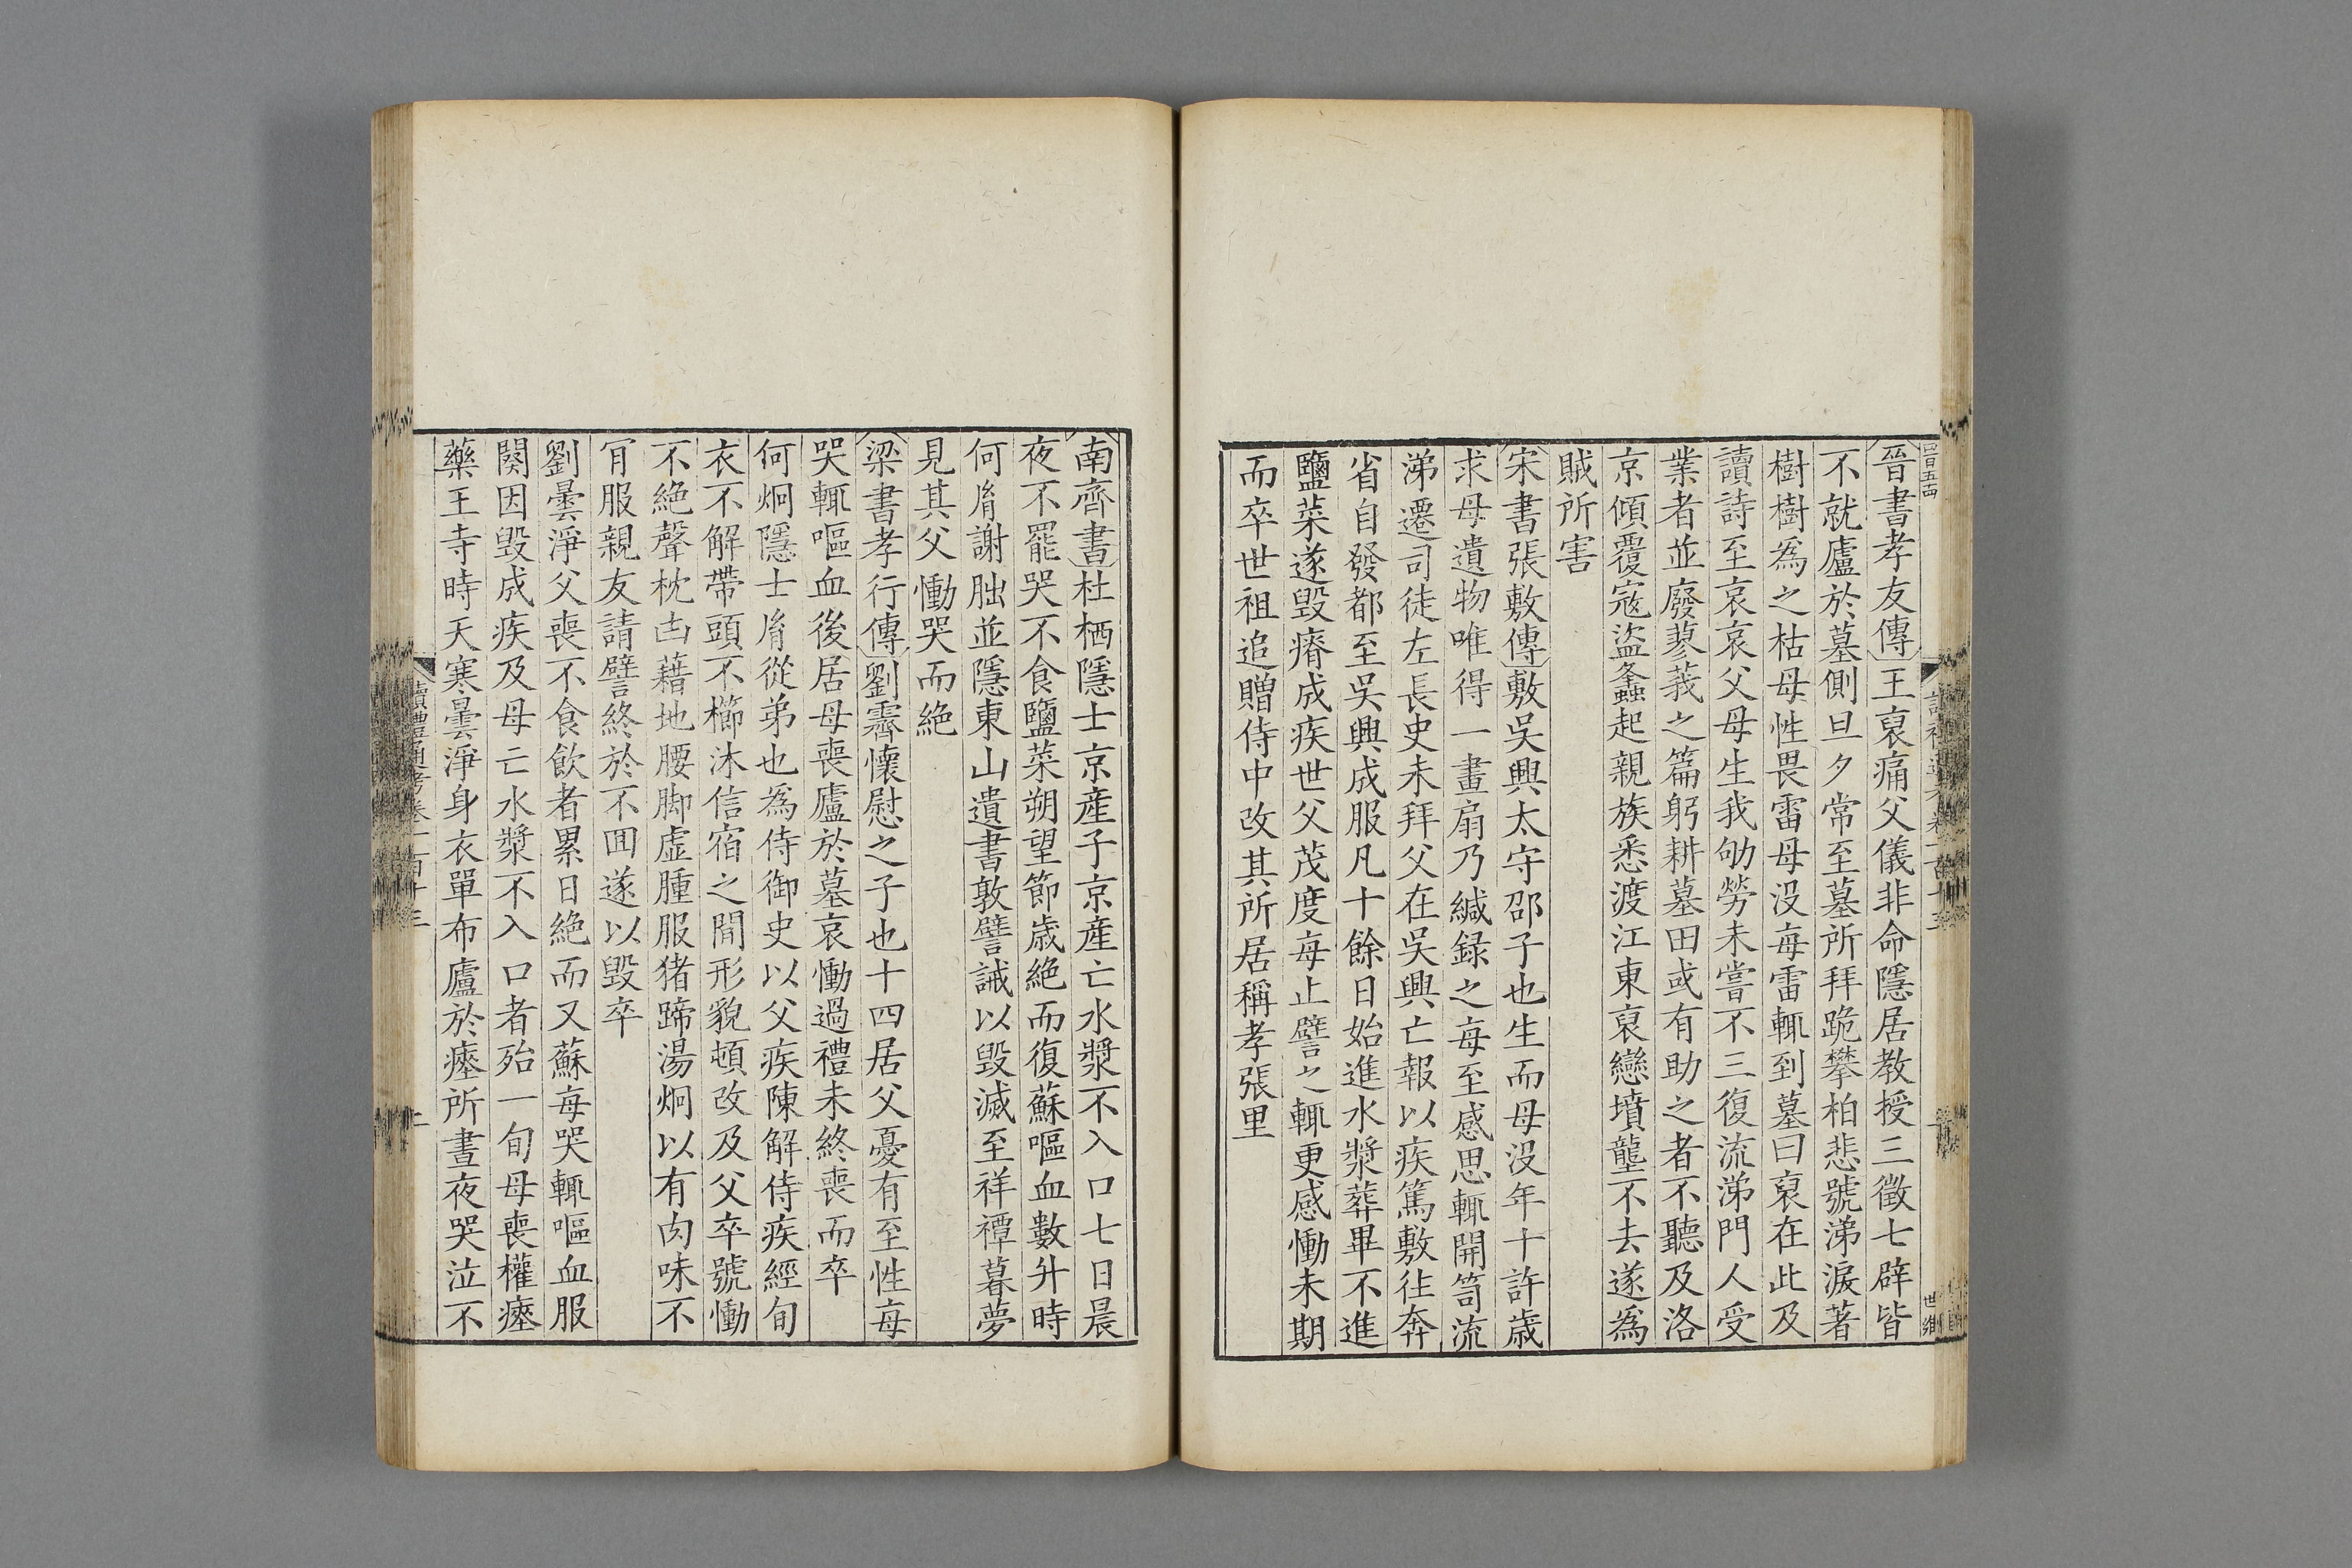 晉書孝友傳王裒痛父儀非命隱居教授三徵七辟皆
不就廬於墓側旦夕常至墓所拜跪攀柏悲號涕淚著
樹樹爲之枯母性畏雷母没每雷輒到墓曰裒在此及
讀詩至哀哀父母生我劬勞未嘗不三復流涕門人受
業者並廢蓼莪之篇躬耕墓田或有助之者不聽及洛
京傾覆寇盜蠭起親族悉渡江東裒戀墳壟不去遂爲
賊所害
宋書張敷傳敷吳興太守邵子也生而母没年十許歳
求母遺物唯得一畫扇乃緘録之每至感思輒開笥流
涕遷司徒左長史未拜父在吳興亡報以疾篤敷徃奔
省自發都至吳興成服凡十餘日始進水漿葬畢不進
鹽菜遂毁瘠成疾世父茂度每止譬之輒更感慟未期
而卒世祖追贈侍中改其所居稱孝張里
南齊書杜栖隱士京産子京産亡水漿不入口七日晨
夜不罷哭不食鹽菜朔望節歳絶而復蘇嘔血數升時
何胤謝朏並隱東山遺書敦譬誡以毁滅至祥禫暮夢
見其父慟哭而絶
梁書孝行傳劉霽懷慰之子也十四居父憂有至性每
哭輒嘔血後居母喪廬於墓哀慟過禮未終喪而卒
何炯隱士胤從弟也爲侍御史以父疾陳解侍疾經旬
衣不解帶頭不櫛沐信宿之間形貌頓改及父卒號慟
不絶聲枕凷藉地腰脚虚腫服猪蹄湯炯以有肉味不
肎服親友請譬終於不回遂以毁卒
劉曇淨父喪不食飲者累日絶而又蘇每哭輒嘔血服
闋因毁成疾及母亡水漿不入口者殆一旬母喪權瘞
藥王寺時天寒曇淨身衣單布廬於瘞所晝夜哭泣不
讀禮通考卷一百十三